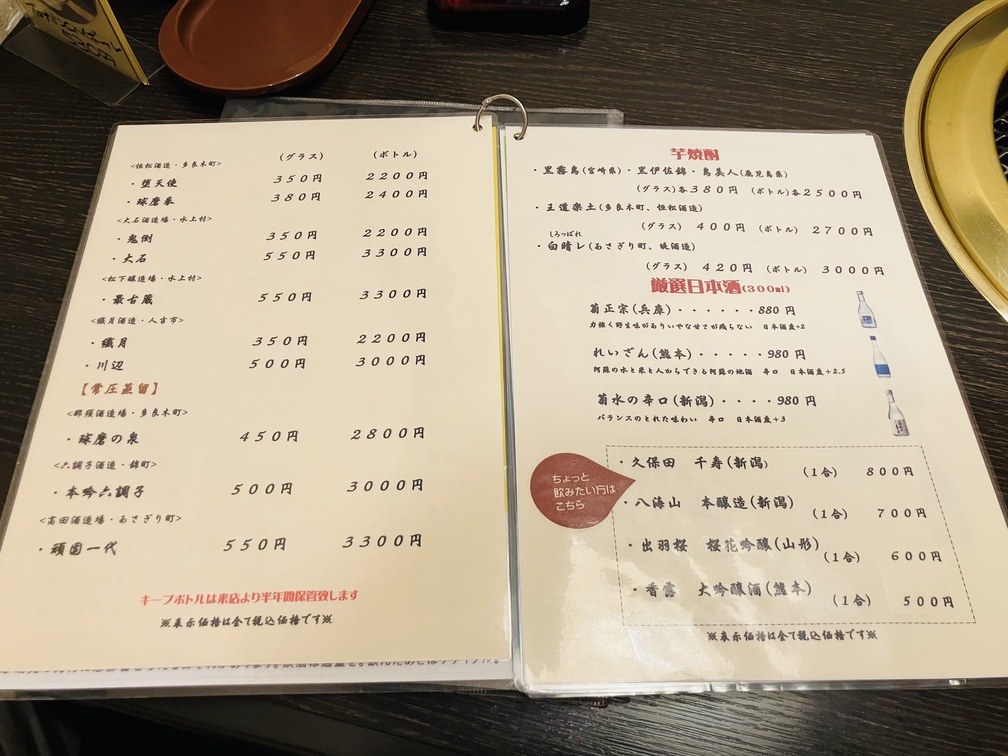 (グラス) (ボトル)
<恒松酒造・多良木町>
・堕天使 350円 2200円
・球磨拳 380円 2400円
<大石酒造場・水上村>
・鬼倒 350円 2200円
・大石 550円 3300円
<松下醸造場・水上村>
・最古蔵 550円 3300円
<繊月酒造・人吉市>
・繊月 350円 2200円
・川辺 500円 3000円
【常圧蒸留】
<那須酒造場・多良木町>
・球磨の泉 450円 2800円
<六調子酒造・錦町>
・本吟六調子 500円 3000円
<高田酒造場・あさぎり町>
・頑固一代 550円 3300円
キープボトルは来店より半年間保管致します
※表示価格は全て税込価格です※
芋焼酎
・黒霧島(宮崎県)・黒伊佐錦・島美人(鹿児島県)
(グラス)各380円 (ボトル)各2500円
・王道楽土(多良木町、恒松酒造)
(グラス) 400円 (ボトル) 2700円
しろっぱれ
・白晴レ(あさぎり町、堤酒造)
(グラス) 420円 (ボトル) 3000円
厳選日本酒(300ml)
菊正宗(兵庫)・・・・・・880円
力強く野生味がありいやな甘さが残らない 日本酒度+2
れいざん(熊本)・・・・・980円
阿蘇の水と米と人からできる阿蘇の地酒 辛口 日本酒度+2.5
菊水の辛口(新潟)・・・・980円
バランスのとれた味わい 辛口 日本酒度+3
ちょっと
飲みたい方は
こちら
・久保田 千寿(新潟) (1合) 800円
・八海山 本醸造(新潟) (1合) 700円
・出羽桜 桜花吟醸(山形) (1合) 600円
・香露 大吟醸酒(熊本) (1合) 500円
※表示価格は全て税込価格です※